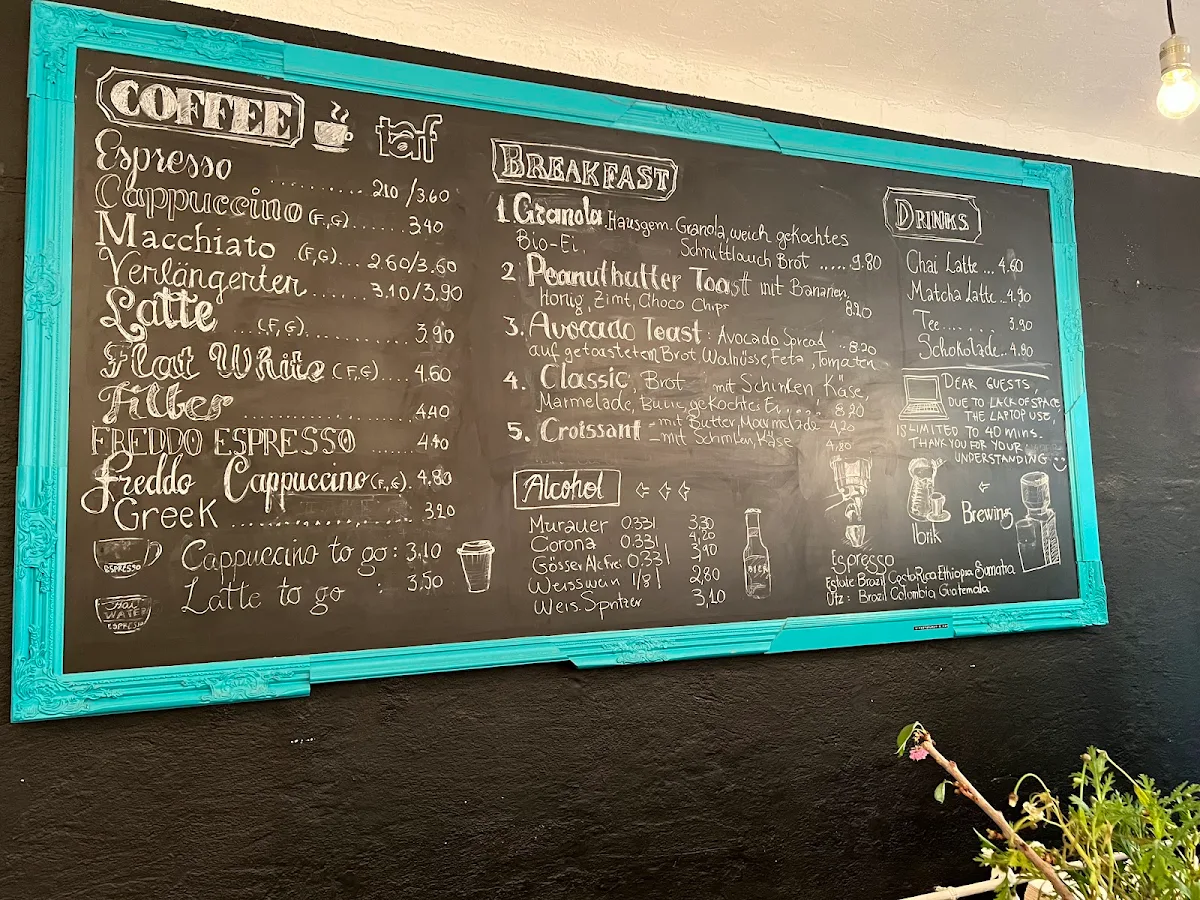 COFFEE
taf
Espresso ............ 2.10 / 3.60
Cappuccino (F,G) ...... 3.40
Macchiato (F,G)... 2.60/3.60
Verlängerter ...... 3.10/3.90
Latte ...(F,G)........... 3.90
Flat White (F,G).... 4.60
Filter .................. 4.40
FREDDO ESPRESSO ....... 4.40
Freddo Cappuccino (F,G). 4.80
Greek ..................... 3.20
ESPRESSO
Cappuccino to go : 3,10
Latte to go : 3,50
WATER
ESPRESSO
BREAKFAST
1. Granola, Hausgem. Granola, weich gekochtes
Bio-Ei, Schnittlauch Brot ...... 9.80
2. Peanutbutter Toast mit Bananen,
Honig, Zimt, Choco Chips 8.20
3. Avocado Toast : Avocado Spread .. 8.20
auf getoasteten Brot, Walnüsse, Feta, Tomaten
4. Classic, Brot mit Schinken Käse,
Marmelade, gekochtes Ei..... 8,20
5. Croissant - mit Butter, Marmelade 4,20
- mit Schinken, Käse 4,80
Alcohol
Murauer 0.33l 3,30
Corona 0.33l 4,20
Gösser Alkfrei 0.33l 3,40
Weisswein 1/8l 2,80
Weis. Spritzer 3,10
BIER
DRINKS
Chai Latte ... 4.60
Matcha Latte .. 4.90
Tee....... 3.90
Schokolade .. 4.80
DEAR GUESTS,
DUE TO LACK OF SPACE
THE LAPTOP USE,
IS LIMITED TO 40 MINS.
THANK YOU FOR YOUR
UNDERSTANDING :)
Ibrik
Brewing
Espresso
Estate Brazil, Costa Rica Ethiopia Sumatra
Utz : Brazil Colombia Guatemala